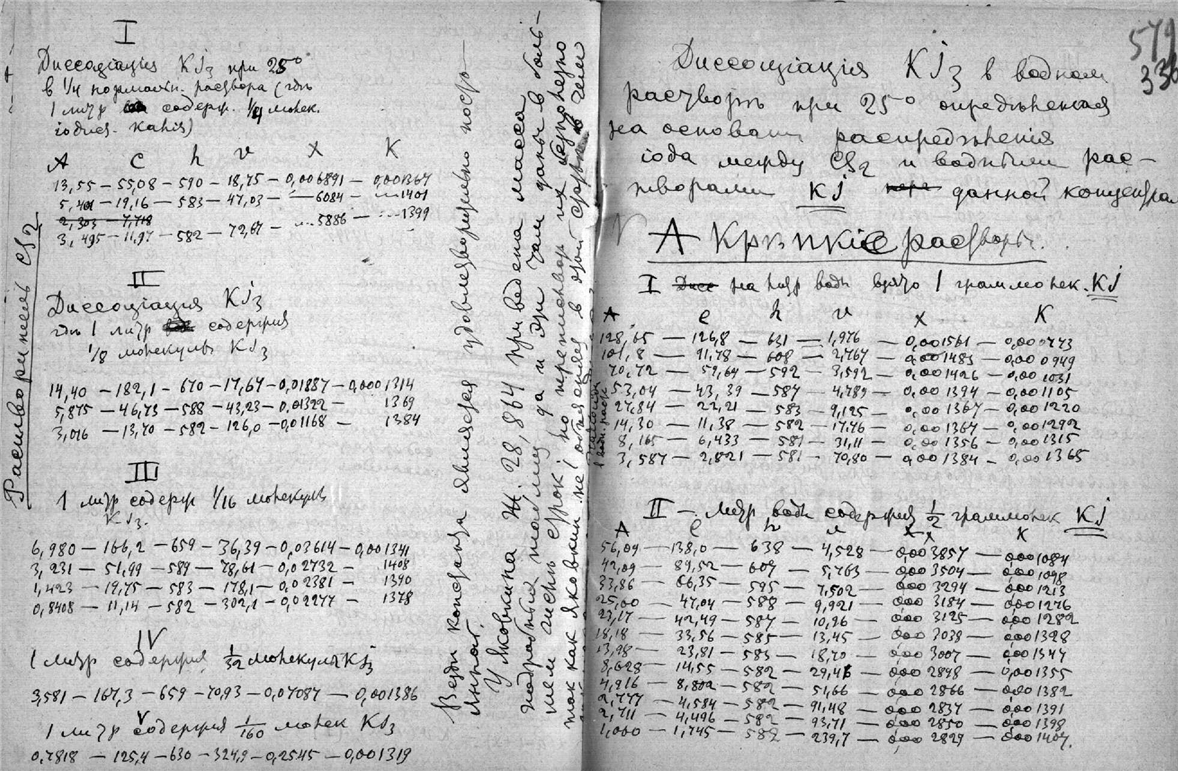 I
Диссоціація KJ3 при 25°
в 1/4 нормальн. раствора (гдѣ
1 литр содерж. 1/4 молек.
іодист. калія)
A C h v X K
13,55 — 55,08 — 590 — 18,75 — 0,006891 — 0,001367
5,401 — 19,16 — 583 — 47,03 — 6084 — 1401
2,303 — 7,718
3,495 — 11,97 — 582 — 72,67 — 5886 — 1399
II
Диссоціація KJ3
гдѣ 1 литр содержит
1/8 молекулы KJ3
14,40 — 182,1 — 670 — 17,64 — 0,01887 — 0,0001314
5,875 — 46,73 — 588 — 43,23 — 0,01322 — 1369
3,016 — 13,70 — 582 — 126,0 — 0,01168 — 1384
III
1 литр содерж 1/16 молекулы
KJ3.
6,980 — 166,2 — 659 — 36,39 — 0,03614 — 0,001341
3,231 — 51,99 — 589 — 78,61 — 0,02732 — 1408
1,423 — 19,75 — 583 — 178,1 — 0,02381 — 1390
0,8408 — 11,14 — 582 — 302,1 — 0,02277 — 1378
IV
1 литр содержит 1/32 молекулы KJ3
3,581 — 167,3 — 659 — 70,93 — 0,07087 — 0,001386
V
1 литр содержит 1/160 молек KJ3
0,7818 — 125,4 — 630 — 324,9 — 0,2545 — 0,001319
Растворитель CS2
Везде константа является удовлетворительно постоянной.
У Яковкина Ж. 28, 864 приведена масса
подробных таблиц да и при том даны в боль-
так как Яковкин не
579
336
Диссоціація KJ3 в водном
растворѣ при 25° опредѣленная
на основан распредѣленія
іода между CS2 и водными рас-
творами KJ данной концентрац
A Крѣпкіе растворы.
I на литр воды взято 1 граммолек. KJ
A C h v X K
128,65 — 126,8 — 631 — 1,976 — 0,001561 — 0,000773
101,8 — 91,78 — 608 — 2,767 — 0,001483 — 0,000949
70,72 — 59,64 — 592 — 3,592 — 0,001426 — 0,001031
53,04 — 43,39 — 587 — 4,789 — 0,001394 — 0,001105
27,84 — 22,21 — 583 — 9,125 — 0,001367 — 0,001220
14,30 — 11,38 — 582 — 17,76 — 0,001367 — 0,001292
8,165 — 6,433 — 581 — 31,11 — 0,001356 — 0,001315
3,587 — 2,821 — 581 — 70,80 — 0,001384 — 0,001365
II — литр воды содержит 1/2 граммолек KJ
A C h v X K
56,09 — 138,0 — 638 — 4,528 — 0,003857 — 0,001084
42,09 — 89,52 — 609 — 5,763 — 0,003504 — 0,001098
33,86 — 66,35 — 595 — 7,502 — 0,003294 — 0,001213
25,00 — 47,04 — 588 — 9,921 — 0,003184 — 0,001276
23,17 — 42,49 — 587 — 10,96 — 0,003125 — 0,001282
18,18 — 33,56 — 585 — 13,45 — 0,003038 — 0,001328
13,98 — 23,81 — 583 — 18,70 — 0,003007 — 0,001347
8,628 — 14,55 — 582 — 29,46 — 0,002898 — 0,001355
4,916 — 8,802 — 582 — 51,66 — 0,002866 — 0,001382
2,777 — 4,584 — 582 — 91,48 — 0,002837 — 0,001391
2,711 — 4,496 — 582 — 93,71 — 0,002850 — 0,001398
1,000 — 1,745 — 582 — 239,7 — 0,002829 — 0,001407.